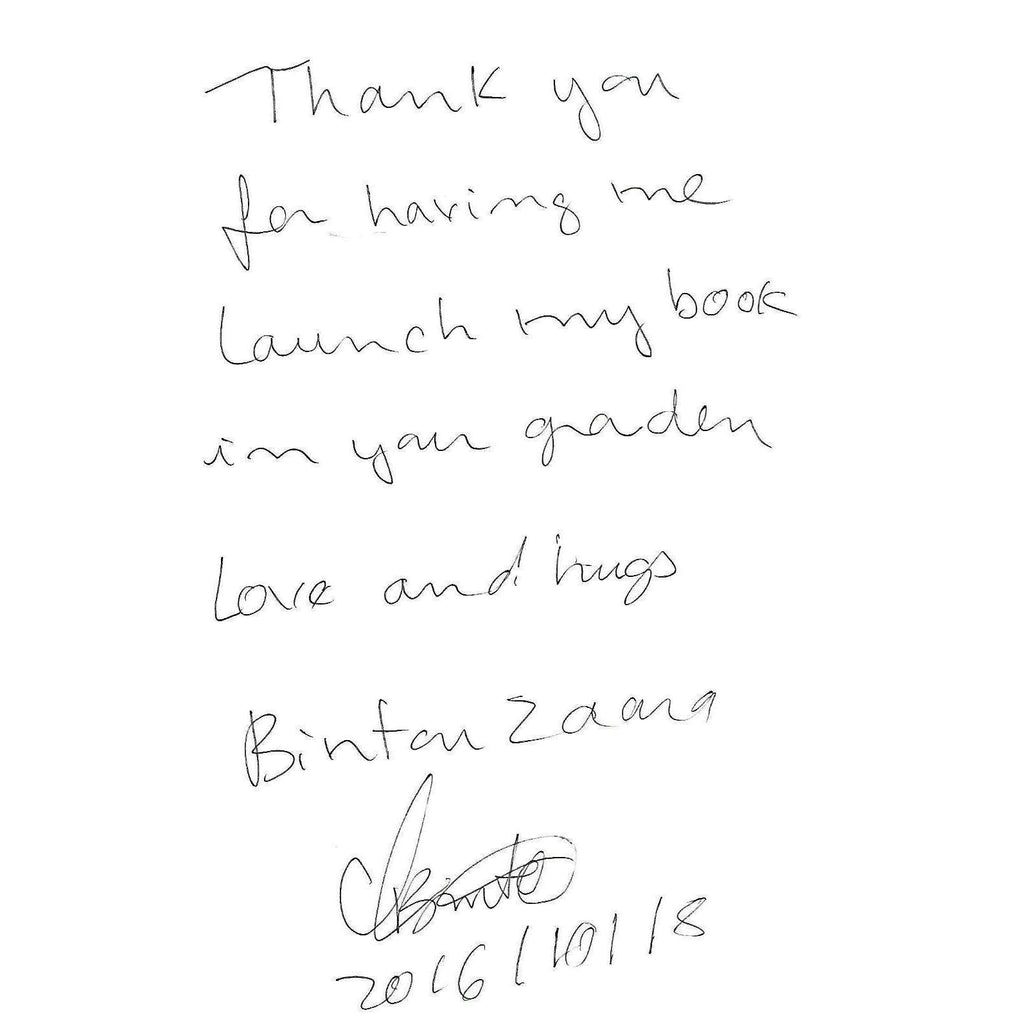 Thank you
for having me
Launch my book
in your graden
Love and hugs
Bintou Zaana
Binto
2016/10/18